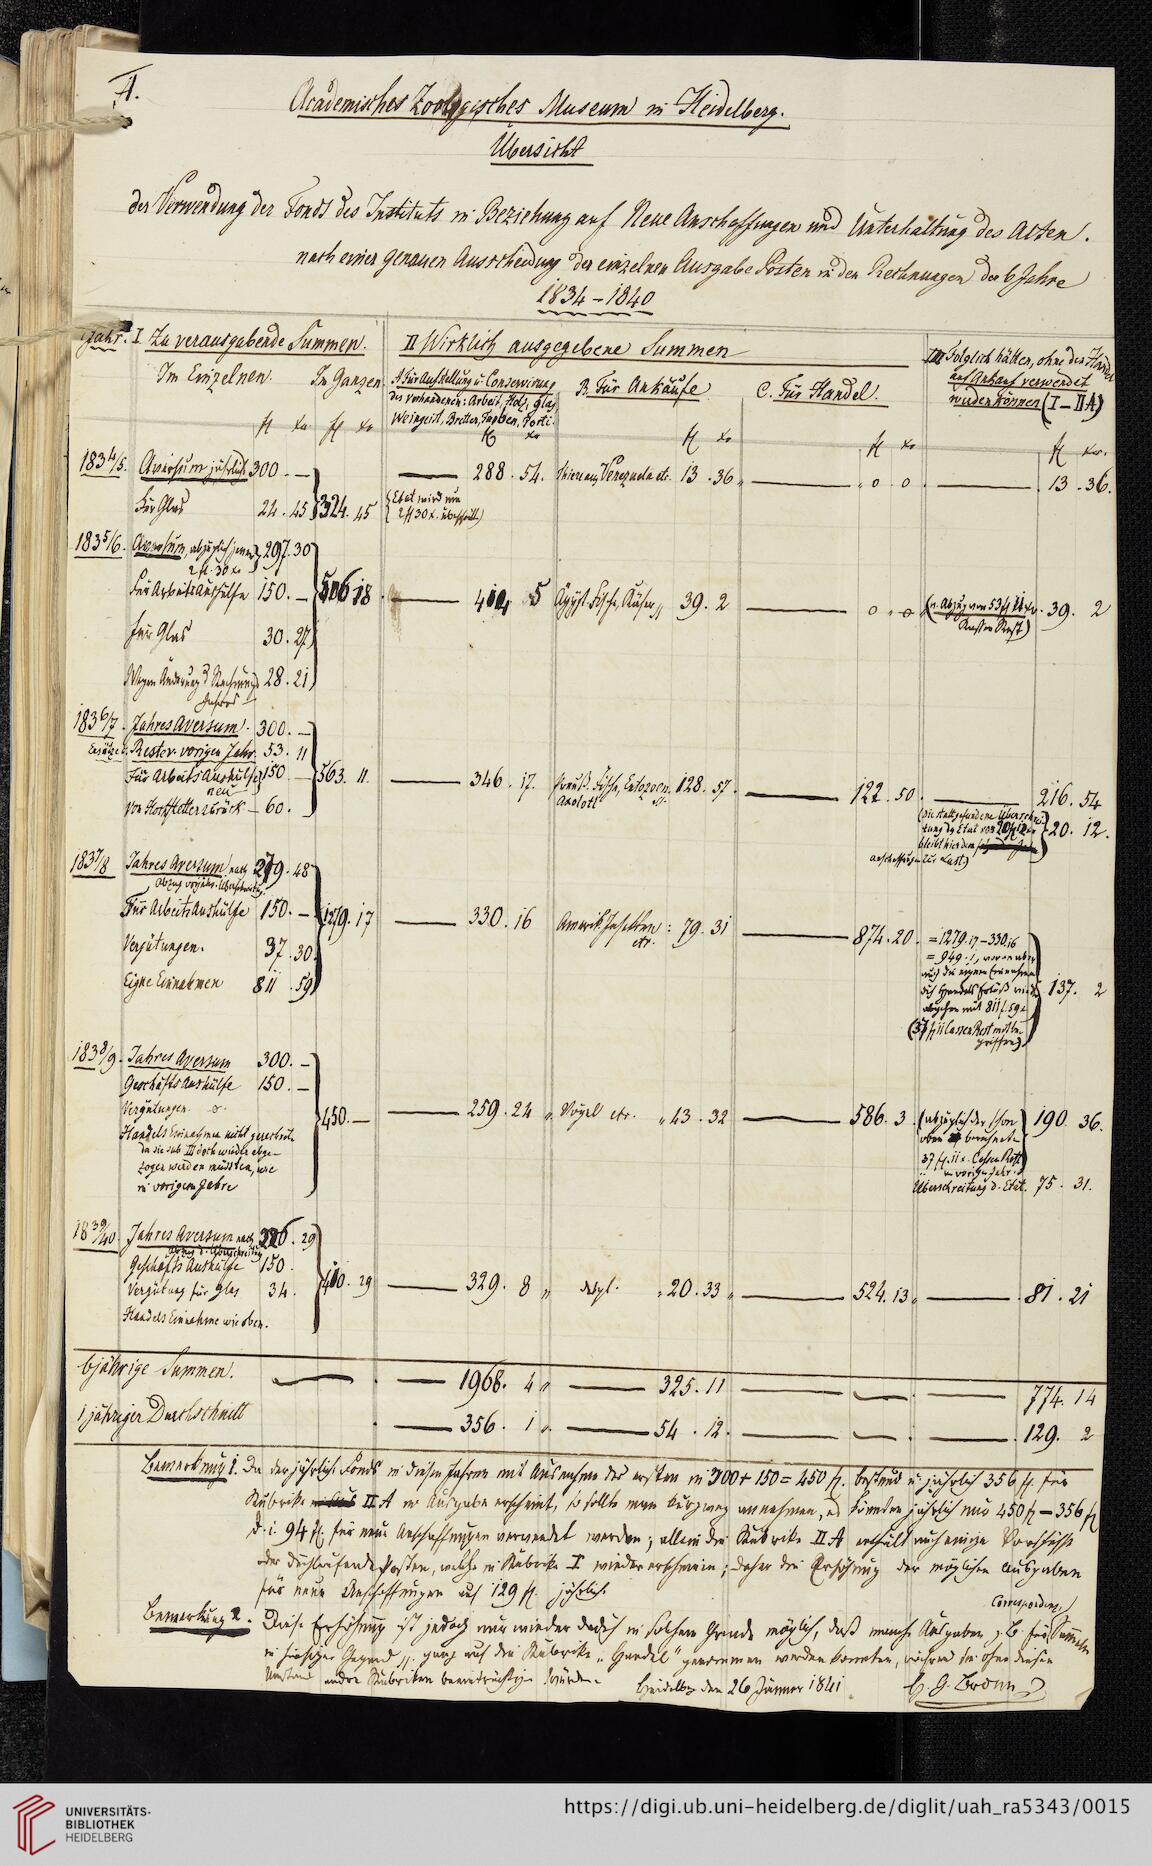 A.
Academisches Zoologisches Museum in Heidelberg.
Übersicht
der Verwendung der Fonds des Instituts in Beziehung auf Neue Anschaffungen und Unterhaltung des Alten.
nach einer genauen Ausscheidung der einzelnen Ausgabe Posten in den Rechnungen der 6 Jahre
1834–1840
Jahr. I Zu verausgabende Summen. II Wirklich ausgegebene Summen III Folglich hätten, ohne den Handel
auf Ankauf verwendet
werden können (I – II A)
Im Einzelnen. Im Ganzen A Für Aufstellung u. Conservirung
des Vorhandenen: Arbeit, Holz, Glas
Weingeist, Bretter, Farben, Porti.
B. Für Ankäufe C. Für Handel.
fl xr fl xr fl xr fl xr fl xr fl xr
1834/5. Aversum jährlich 300. — 288. 54. Thiere aus Venezuela etc. 13. 36 0 0 13. 36.
Für Glas 24. 45 324. 45 (Etat wird um
2 fl 30 x. überschritt.)
1835/6. Aversum, abzüglich jener 297. 30
2 fl. 30 x
Für Arbeits Aushülfe 150. — 506 18 5 Ägypt. Fische, Käfer 39. 2 0. 0 39. 2
für Glas 30. 27
Wegen Änderung d. Rechnungs 28. 21
Jahres
1836/7. Jahres Aversum. 300. —
Rest v. vorigen Jahr. 53. 11
Für Arbeits Aushülfe 150 — 563. 11. 346. 17. Fische, Entozoen 128. 57. 122. 50. 216. 54
neu Axolotl
von — 60. 20. 12.
bleibt hier dem
Anschaffungen zur Last)
1837/8 Jahres Aversum nach 279. 48
Abzug vorjähr. Überschreitung
Für Arbeits Aushülfe 150. — 1279. 17 330. 16 Amerik. Insekten 79. 31 874. 20. = 1279.17 – 330.16
etc. = 949. 1, wovon aber
Vergütungen. 37. 30 auch die eigenen Einnahmen
Eigne Einnahmen 811. 59 137. 2
abgehen mit 811 f. 59 x
1838/9. Jahres Aversum 300. —
Geschäfts Aushülfe 150. —
Vergütungen. 0. 450. — 259. 24 Vögel etc. 43. 32 586. 3. (abzüglich der schon 190. 36.
Handels Einnahme nicht gerechnet oben berechneten
da sie sub III doch wieder abge- 37 fl. 11 x. Cassen Rest
zogen werden müssten, wie vorigen Jahr.)
in vorigem Jahre Überschreitung d. Etat. 75. 31.
1839/40 Jahres Aversum nach 226. 29
Abzug d. Überschreitung
Geschäfts Aushülfe 150.
Vergütung für Glas 34. 410. 29 329. 8 20. 33 524. 13 81. 21
Handels Einnahme wie oben.
6jährige Summen. 1968. 4 325. 11 774. 14
1 jähriger Durchschnitt 356. 1 54. 12. 129. 2
Bemerkung 1. Da der jährl. Fonds in diesen Jahren mit Ausnahme des ersten in 300 + 150 = 450 fl. bestund u. jährlich 356 fl. für
Rubrike II A in Ausgabe erscheint, so sollte man kurzweg annehmen, es könnten jährlich nur 450 fl – 356 fl
d. i. 94 fl. für neue Anschaffungen verwendet werden; allein die Rubrike II A enthält auch einige Vorschüsse
oder durchlaufende Posten, welche in Rubrike I wieder erscheinen; daher die Erhöhung der möglichen Ausgaben
für neue Anschaffungen auf 129 fl. jährlich
Bemerkung 2. Diese Erhöhung ist jedoch nur wieder dadurch in solchem Grade möglich, daß manche Ausgaben z. B. für Correspondenz, Sammeln
in hiesiger Gegend ganz auf die Rubrike „Handel“ genommen werden konnten, während sie ohne diesen
Umstand andre Rubriken beeinträchtigen würden. Heidelberg den 26 Jänner 1841 H. G. Bronn
UNIVERSITÄTS-
BIBLIOTHEK
HEIDELBERG
https://digi.ub.uni-heidelberg.de/diglit/uah_ra5343/0015